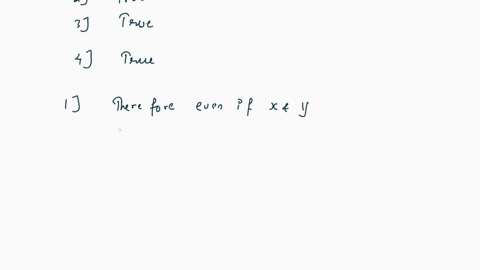 3] True
4] True
1] There fore even if x & y